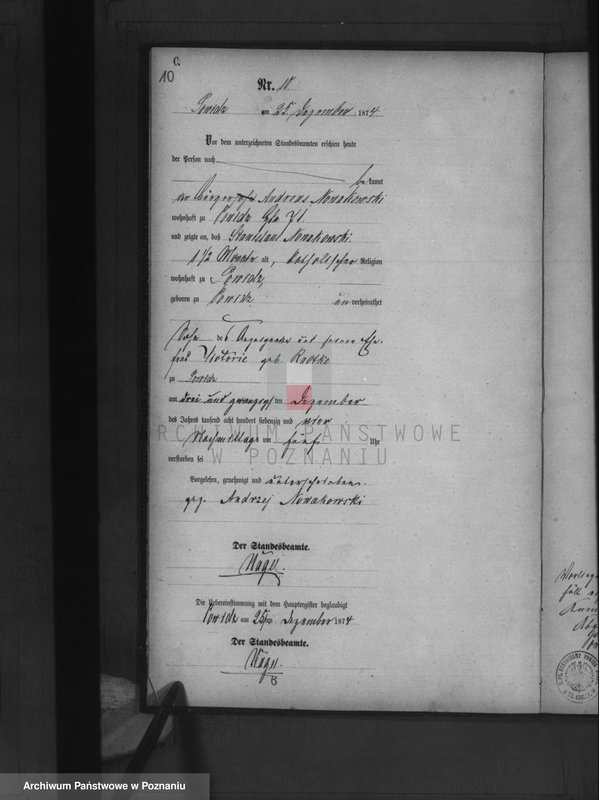 C.
10
Nr. 10
Powidz am 25 Dezember 1874
Vor dem unterzeichneten Standesbeamten erschien heute
der Person nach
be kannt
der Andreas Nowakowski
wohnhaft zu Powidz 71
und zeigte an, daß Stanislaus Nowakowski.
1 1/2 Monate alt, katholischer Religion
wohnhaft zu Powidz,
geboren zu Powidz un verheirathet
Sohn des Anzeigenden und seiner Ehe-
frau Victorie geb. Radtke
zu Powidz
am drei und zwanzigsten Dezember
des Jahres tausend acht hundert siebenzig und vier
Nachmittags um fünf Uhr
verstorben sei
Vorgelesen, genehmigt und unterschrieben
gez. Andrzej Nowakowski
Der Standesbeamte.
Nagel.
Die Uebereinstimmung mit dem Hauptregister beglaubigt
Powidz am 25ten Dezember 1874
Der Standesbeamte.
Nagel.
ARCHIWUM PAŃSTWOWE
W POZNANIU
Archiwum Państwowe w Poznaniu